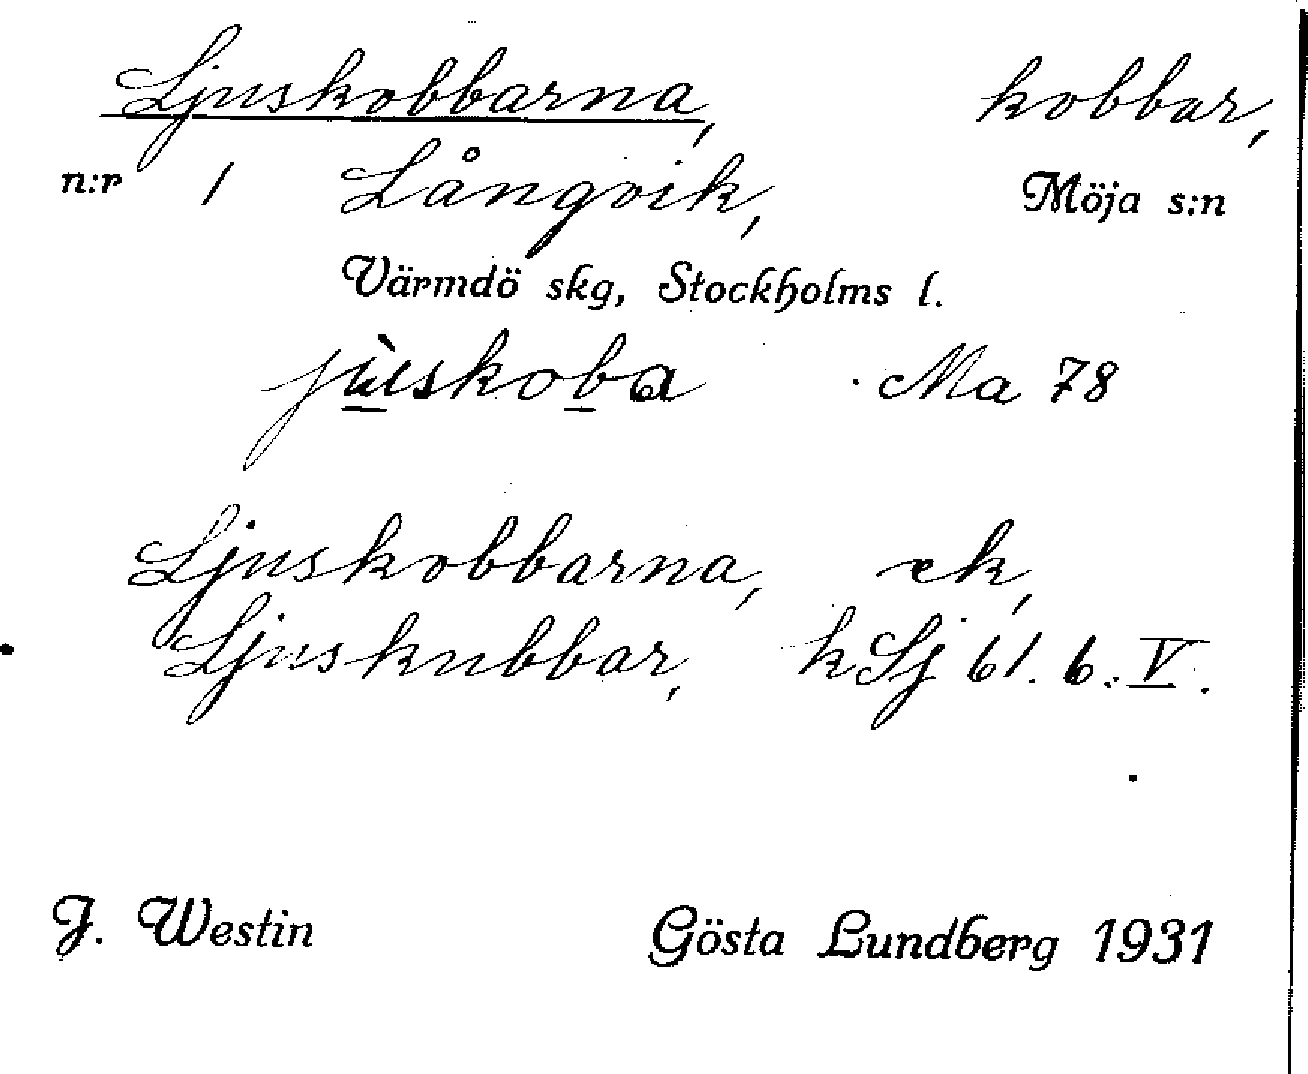 Ljuskobbarna, kobbar,
n:r 1 Långvik, Möja s:n
Värmdö skg, Stockholms l.
jùskoba Ma 78
Ljuskobbarna, ek,
Ljuskubbar, kSj 61. 6. V.
J. Westin Gösta Lundberg 1931